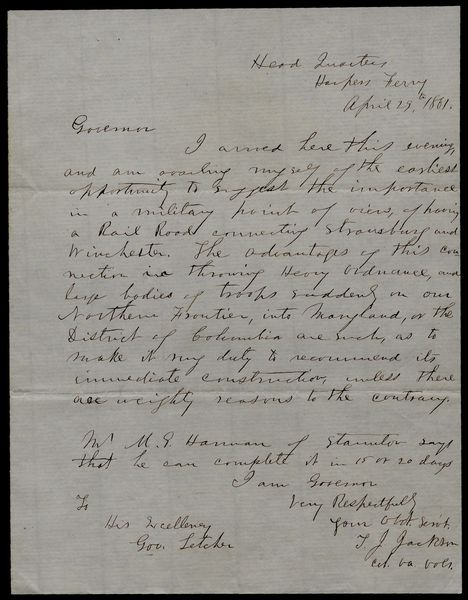 Head Quarters
Harpers Ferry
April 29th 1861.
Governor
I arrived here this evening
and am availing myself of the earliest
opportunity to suggest the importance
in a military point of view, of having
a Rail Road connecting Strausburg and
Winchester. The advantages of this con
nection in throwing Heavy Ordnance, and
large bodies of troops suddenly on our
Northern Frontier, into Maryland, or the
District of Columbia are such, as to
make it my duty to recommend its
immediate construction, unless there
are weighty reasons to the contrary.
Mr M. G. Harman of Staunton says
that he can complete it in 15 or 20 days
I am Governor
Very Respectfully
Your Obdt. Servt.
To
His Excellency
Gov. Letcher
T. J. Jackson
Col. Va. Vols.